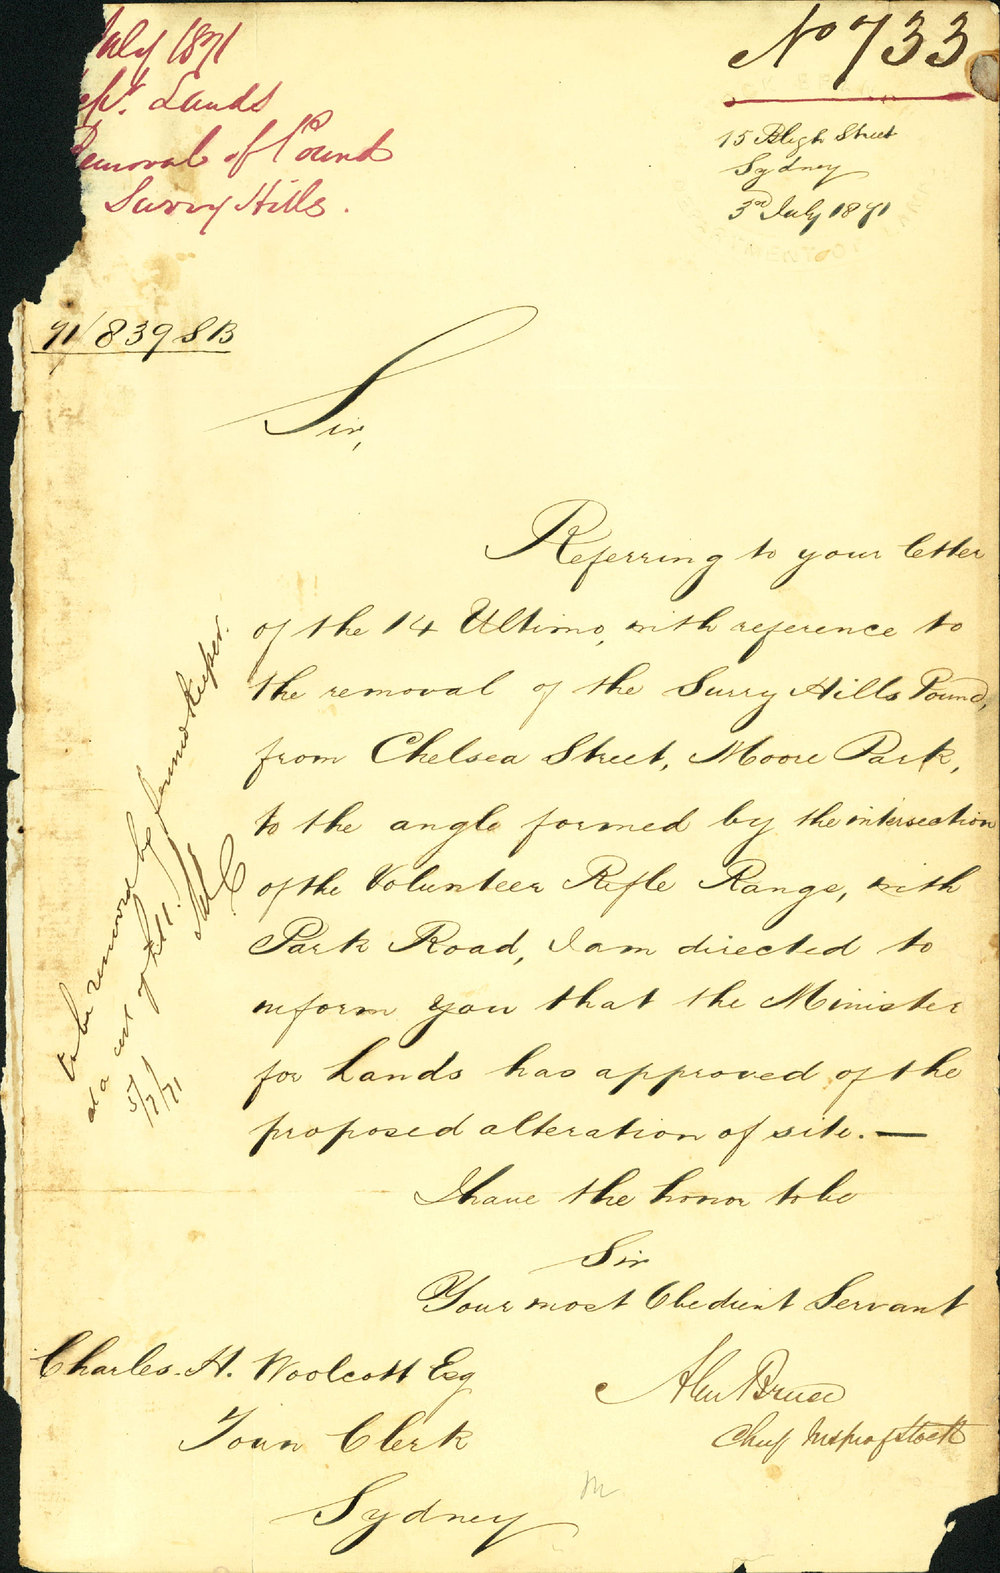 July 1871
Dept. Lands
Removal of Pound
Surry Hills.
No 733
15 Bligh Street
Sydney
3rd July 1871
71/839 SB
Sir,
Referring to your letter
of the 14 Ultimo, with reference to
the removal of the Surry Hills Pound,
from Chelsea Street, Moore Park,
to the angle formed by the intersection
of the Volunteer Rifle Range, with
Park Road, I am directed to
inform you that the Minister
for Lands has approved of the
proposed alteration of site. —
I have the honor to be
Sir
Your most Obedient Servant
Alex Bruce
Chief Insp of Stock
Charles. H. Woolcott Esq
Town Clerk
Sydney
to be removed by poundkeeper.
at a cost of
5/7/71